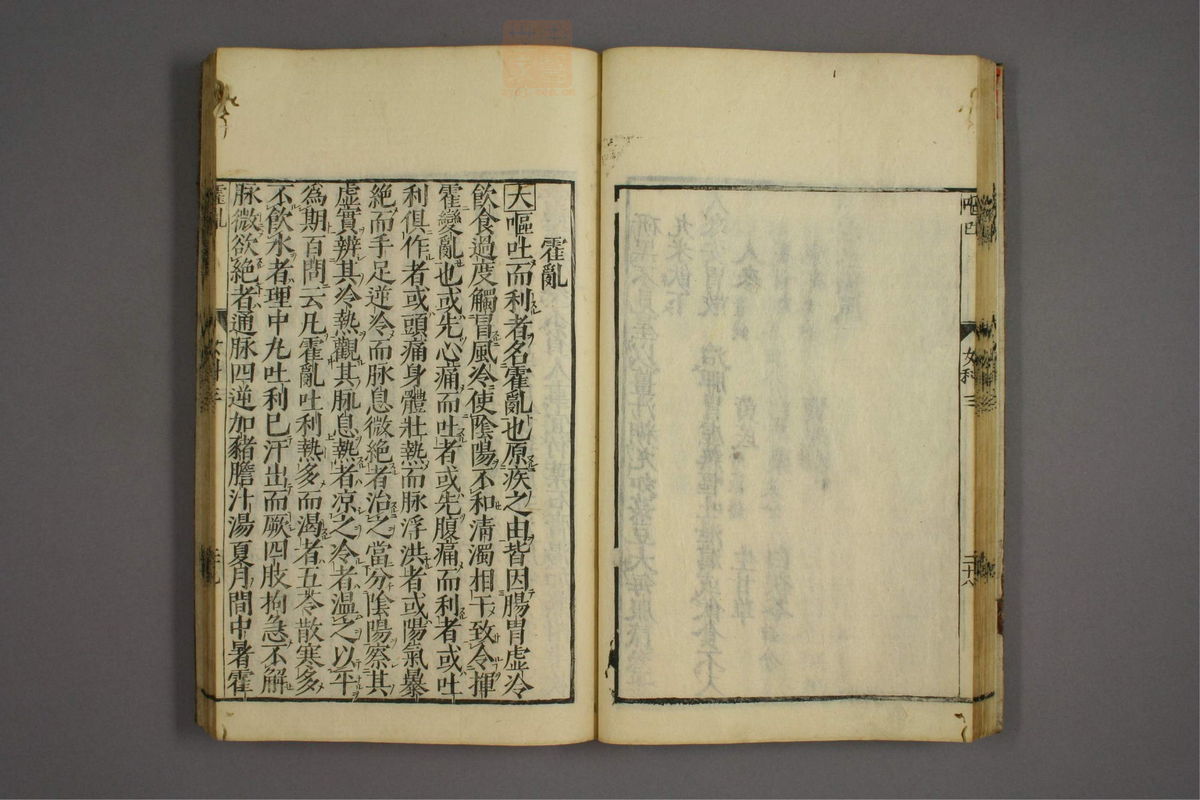 嘔吐
女科 三
二十八
霍亂
夫嘔吐而利者名霍亂也原疾之由皆因腸胃虛冷
飲食過度觸冒風冷使陰陽不和清濁相干致令揮
霍變亂也或先心痛而吐者或先腹痛而利者或吐
利俱作者或頭痛身體壯熱而脉浮洪者或陽氣暴
絶而手足逆冷而脉息微絶者治之當分陰陽察其
虛實辨其冷熱觀其脉息熱者凉之冷者温之以平
為期百問云凡霍亂吐利熱多而渴者五苓散寒多
不飲水者理中丸吐利巳汗出而厥四肢拘急不解
脉微欲絶者通脉四逆加豬膽汁湯夏月間中暑霍
霍亂